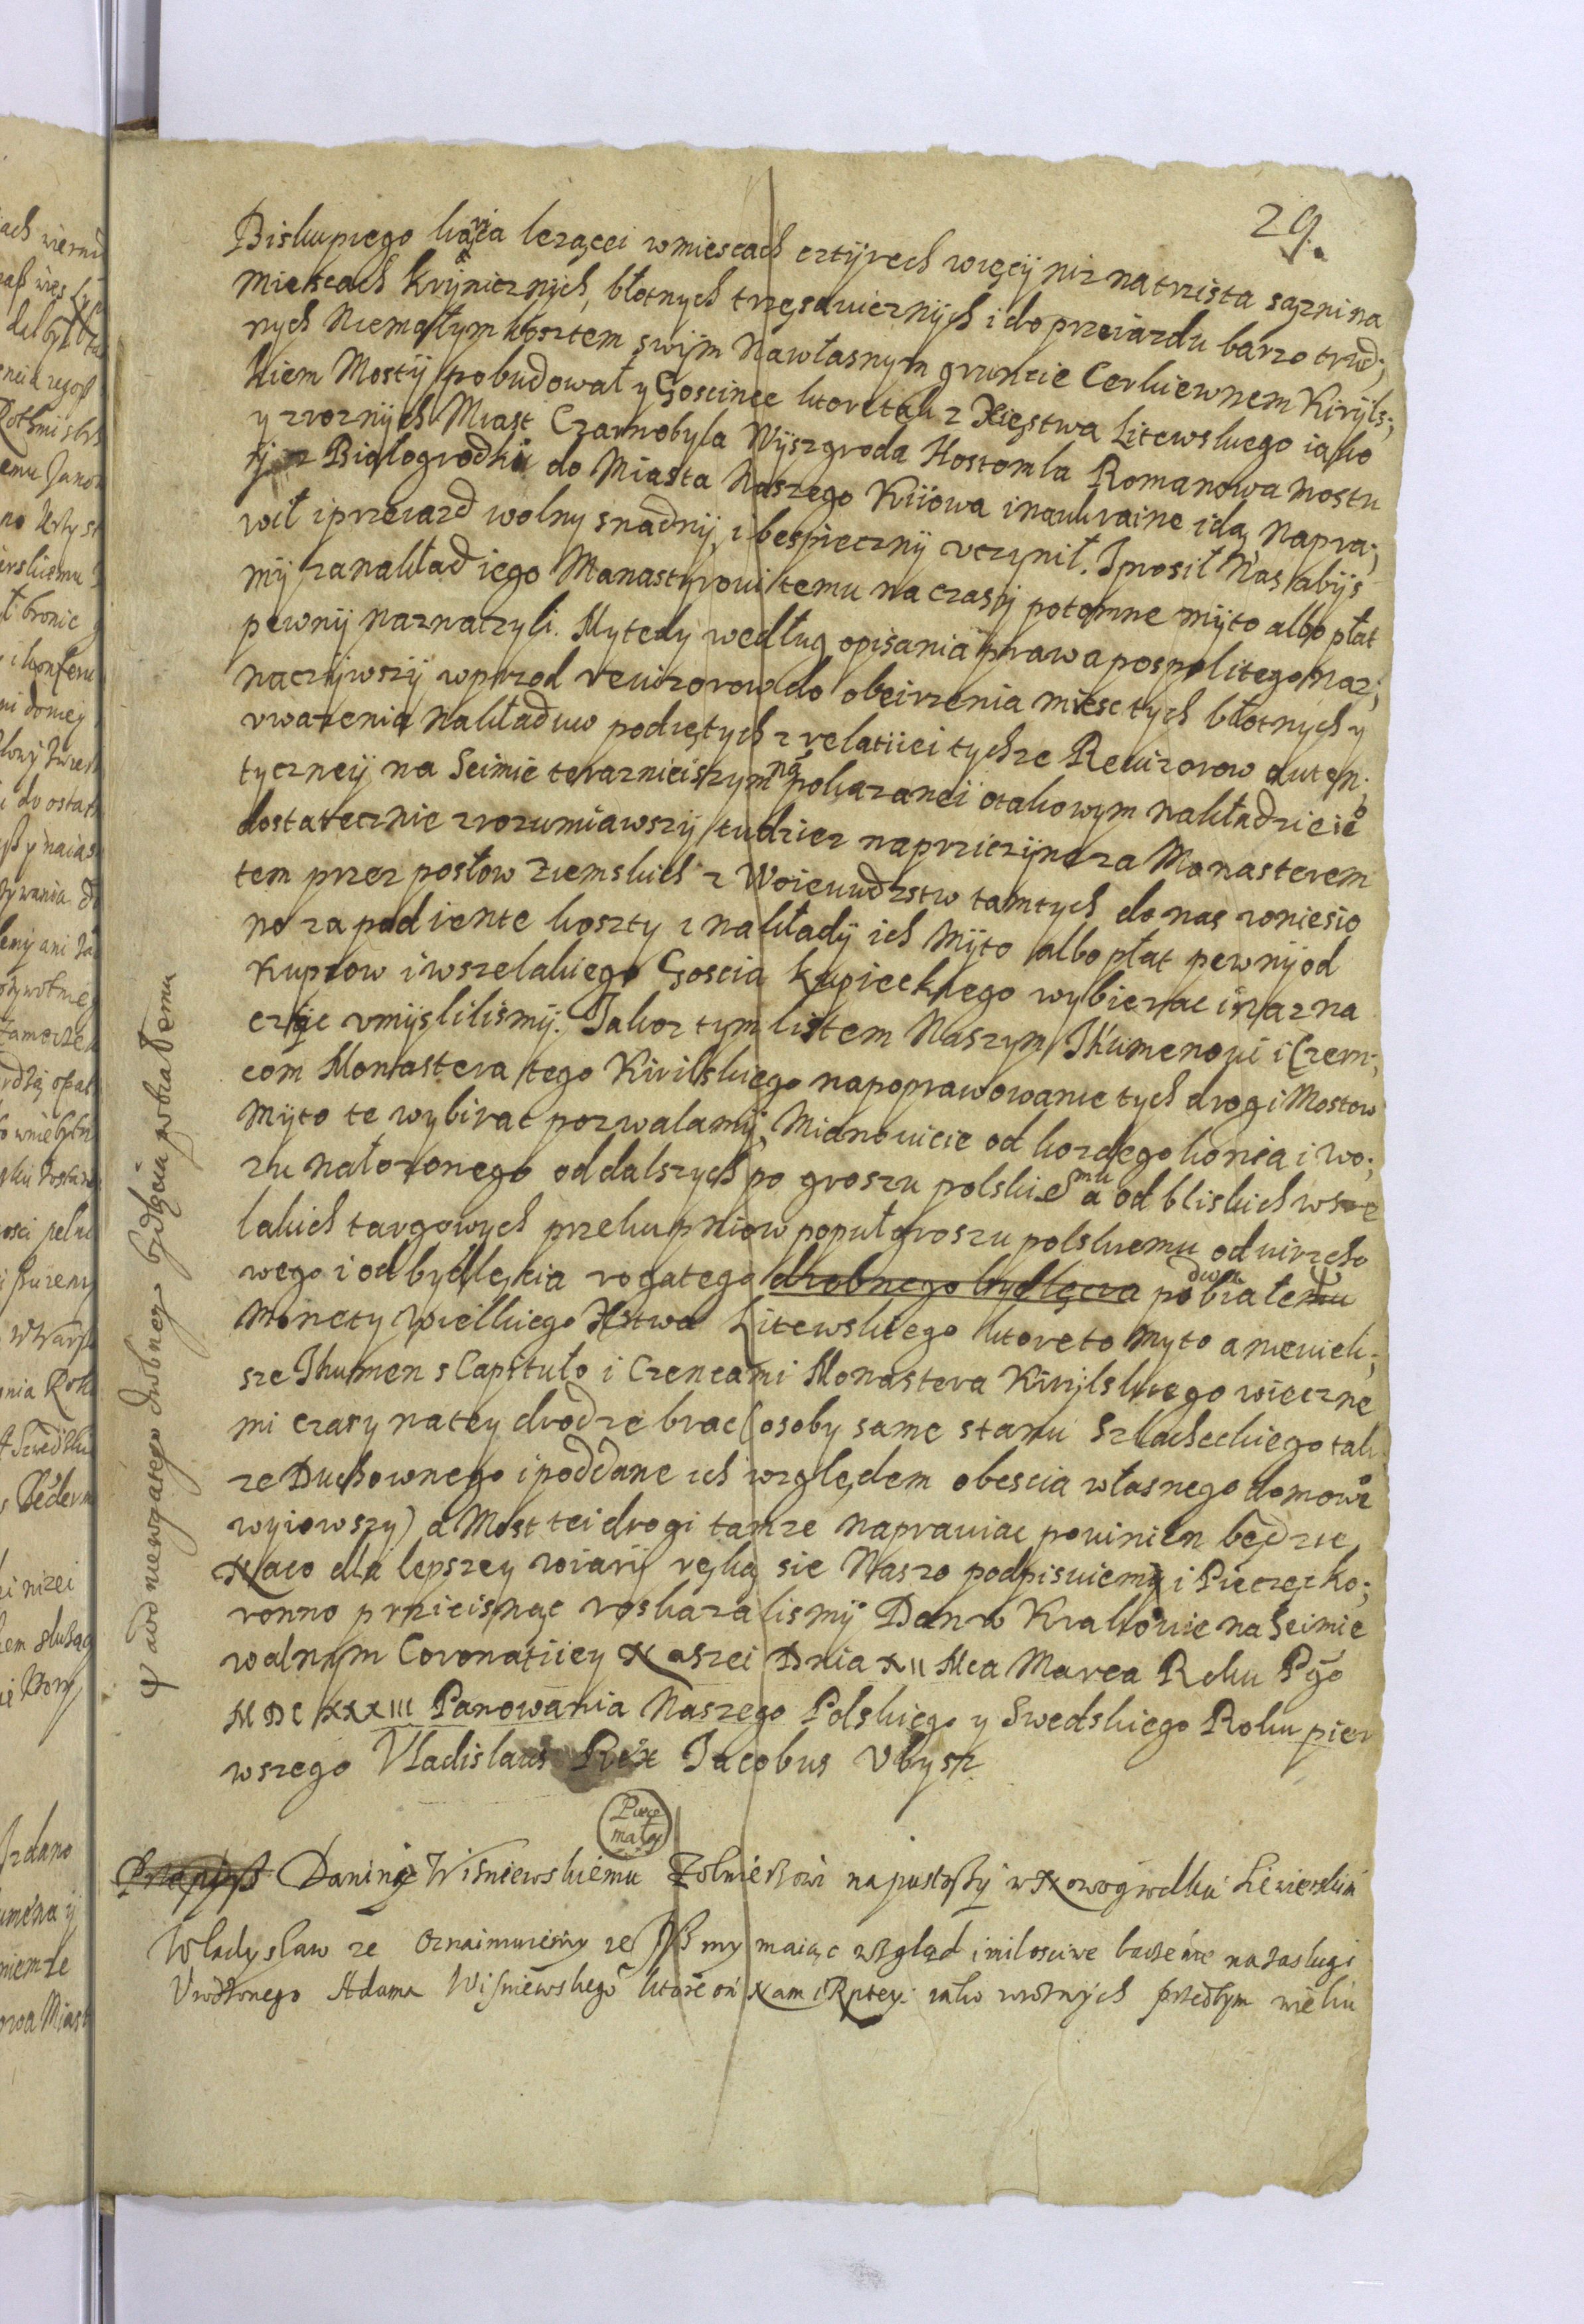 29.
Biskupiego kraia lezącei wmiescach cztÿrech więcÿ niz natrzista sązni na
Miescach krÿnicznÿch, błotnych trzęsawicznÿch i do prziazdu barzo trud;
nych Niemałym kosztem swÿm Nawłasnym gruncie Cerkiewnem Kirÿls;
kiem Mostÿ pobudował y Gosciniec ktore tak z Xięstwa Litewskiego iako
y zroznÿch Miast Czarnobyla Wÿszgroda Hostomla Romanowa Mostu
ÿ z Bialogrodki do Miasta Naszego Kiiowa i naukraine idą Napra;
wił i przeiazd wolny snadnÿ i bespiecznÿ vczynił. I prosił Nas abÿs
mÿ za nakład iego Manastyrowi temu na czasÿ potomne mÿto albo płat
pewnÿ naznaczyli. My tedy według opisania prawa pospolitego naz;
naczÿwszÿ wprzod rewizorow do obeirzenia miesc tych błotnych y
vwazenia nakładuw podiętych z relatiiei tychze Rewizorow auten;
tyczneÿ na Seimie terazniejszym na pokazanei o takowym nakładzie ie°
dostatecznie zrozumiawszÿ tudziez naprziczÿne za Monasterem
tem przez posłow ziemskich z Woiewudzstw tamtych do nas wniesio
no za podiente koszty i nakładÿ ich Mÿto albo płat pewnÿ od
Kupcow i wszelakiego Goscia kupieckiego wybierac i naznac
czÿc vmÿslilismÿ. Jakoz tym listem Naszym Jhumenowi i Czern;
com Monastera tego Kirilskiego napoprawowanie tych drog i Mostow
Mÿto te wybirat pozwalamÿ, Mianowicie od kozdego konia i wo;
zu nałozonego od dalszych po groszu polskiemu a od bliskich wsze
lakich targowych przekupniow po pułgroszu polskiemu od wirzcho
wego i od bydlęcia rogatego drobnego bydlęcia po dwa białemu
Monety Wielkiego Xstwa Litewskiego ktore to Myto a niewiek;
sze Jhumen s Capituło i Czencami Monastera Kirÿlskiego wieczne
mi czasy na tey drodze brac (osoby same stanu Szlacheckiego tak
ze Duchownego i poddane ich względem obescia własnego domowe°
wyiowszy) a Most tei drogi tamze naprawiac powinien będzie
Naco dla lepszey wiarÿ ręką sie Naszo podpisuiemÿ i Pieczęc ko;
ronno przicisnąc roskazalismÿ Dan w Krakowie na Seimie
walnÿm Coronatiiey Naszei Dnia XII Mca Marca Roku Pgo
MDCXXXIII Panowania Naszego Polskiego y Swedskiego Roku pier
wszego Vladislaus Rex Jacobus Vbysz
Ψ a od nierogatego drobnego bydlęcia po białemu
Piecz
mała
Przepiß Daninÿ Wisniewskiemu Zołnierzowi na pustoszÿ w Nowogrodku Siewierskim
Wladyslaw ze Oznaimuiemy ze Jßmy maiąc wzgląd i milosciwe baczenie na zasługi
Vrodzonego Adama Wisniewskiego ktore on Nam i Rptey: iako w roznych przedtym wielu